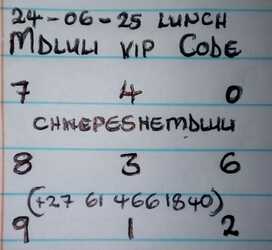 24-06-25 LUNCH
MDLULI VIP CODE
7 4 0
CHNEPESHEMDLULI
8 3 6
(+27 61 4661840)
9 1 2